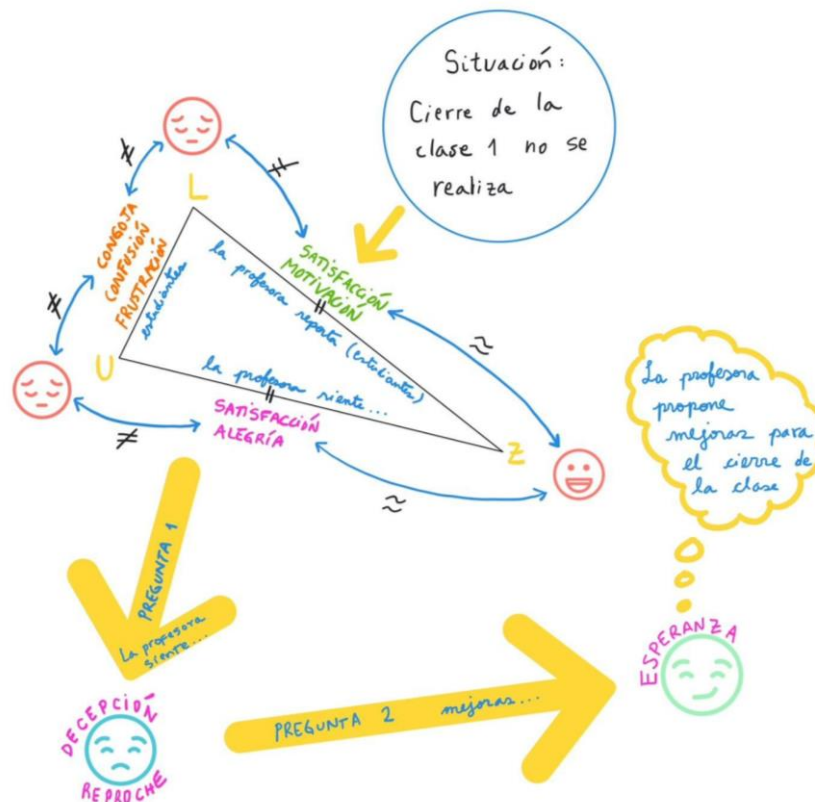 Situación:
Cierre de la
clase 1 no se
realiza
L
CONGOJA
CONFUSIÓN
FRUSTRACIÓN
estudiantes
SATISFACCIÓN
MOTIVACIÓN
la profesora reporta (estudiantes)
U
la profesora siente...
SATISFACCIÓN
ALEGRÍA
Z
≠
≠
≠
≠
≈
≈
La profesora
propone
mejoras para
el cierre de
la clase
PREGUNTA 1
La profesora
siente...
DECEPCIÓN
REPROCHE
PREGUNTA 2 mejoras...
ESPERANZA